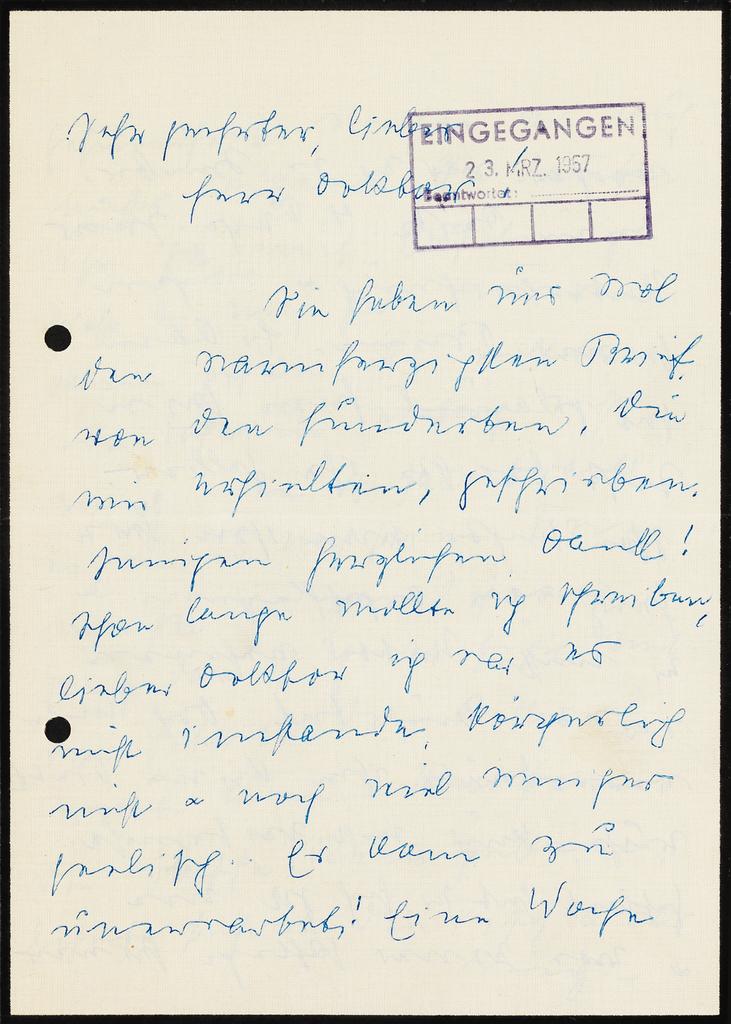 Sehr geehrter, lieber
Herr Doktor
EINGEGANGEN
23. MRZ. 1957
Beantwortet:
Sie haben uns wol
den warmherzigsten Brief
von den hunderten, die
wir erhielten, geschrieben.
Innigen herzlichen Dank!
Schon lange wollte ich schreiben,
lieber Doktor ich war es
nicht imstande, körperlich
nicht & noch viel weniger
seelisch.. Es kam zu
unerwartet! Eine Woche